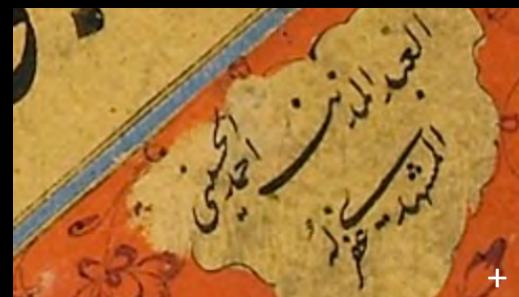 العبد المذنب
احمد الحسنی
المشهدی غفر له